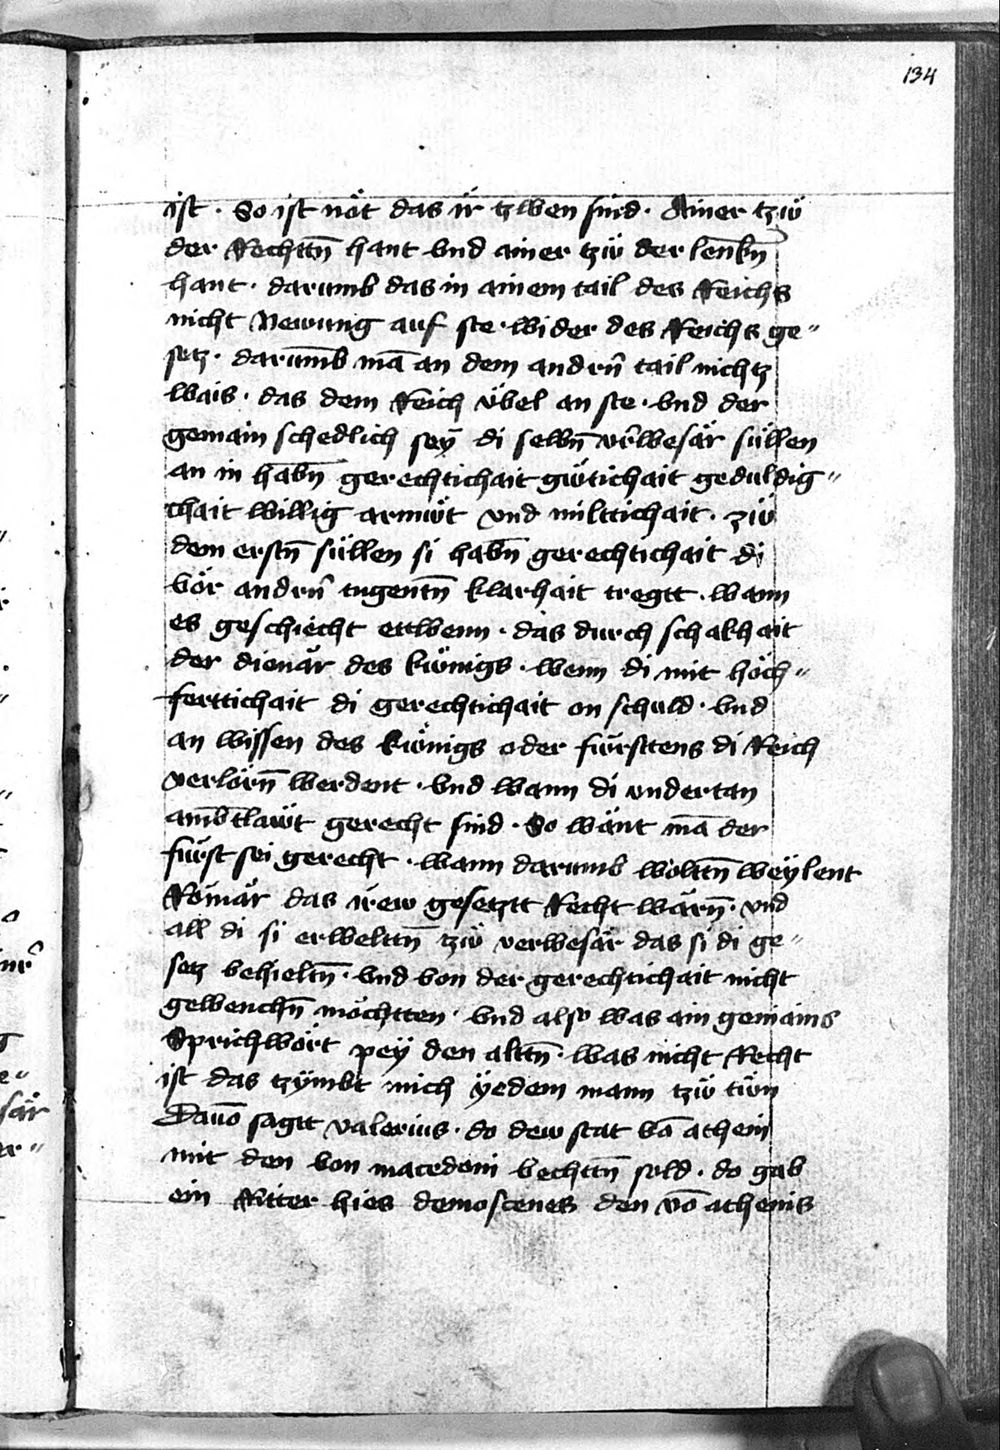 134
ist · So ist nöt das ir tzwen sind · Ainer tzü
der Rechttn̄ hant vnd ainer tzü der lenkn̄
hant · darumb das in ainem tail des Reichs
nicht Newung auf ste · wider des Reichs ge″
setz · darumb mā an dem andrn̄ tail nichtz
wais · das dem Reich übel an ste · vnd der
gemain schedlich seÿ di selbn̄ v̈rwesär süllen
an in habn̄ gerechtichait gütichait geduldig″
chait willig armüt vnd milttichait · zü
dem erstn̄ süllen si habn̄ gerechtichait di
vör andrn̄ tugentn̄ klarhait tregtt · wann
es geschiecht ettwenn · das durch schalkhait
der dienär des künigs · wenn di mit höch″
ferttichait di gerechtichait on schuld · vnd
an wissen des künigs oder fürsttens di Reich
verlörn̄ werdent · vnd wann di vndertan
ambtläwt gerecht sind · So wänt mā der
fürst sei gerecht · wann darumb woltn̄ weÿlent
Römär das irew gesetztt Recht wärn̄ · vnd
all di si erwelttn̄ tzü verwesär das si di ge″
setz behieltn̄ · vnd von der gerechtichait nicht
gewenchn̄ möchtten · vnd also was ain gemains
Sprichwört peÿ den alttn̄ · was nicht Recht
ist das tzÿmbt nich ÿedem mann tzü tün
Dauō sagtt valerius · do dew stat vā athein
mit den von macedoni vechttn̄ sold · do gab
ein Ritter hies demostenes den vō athenis